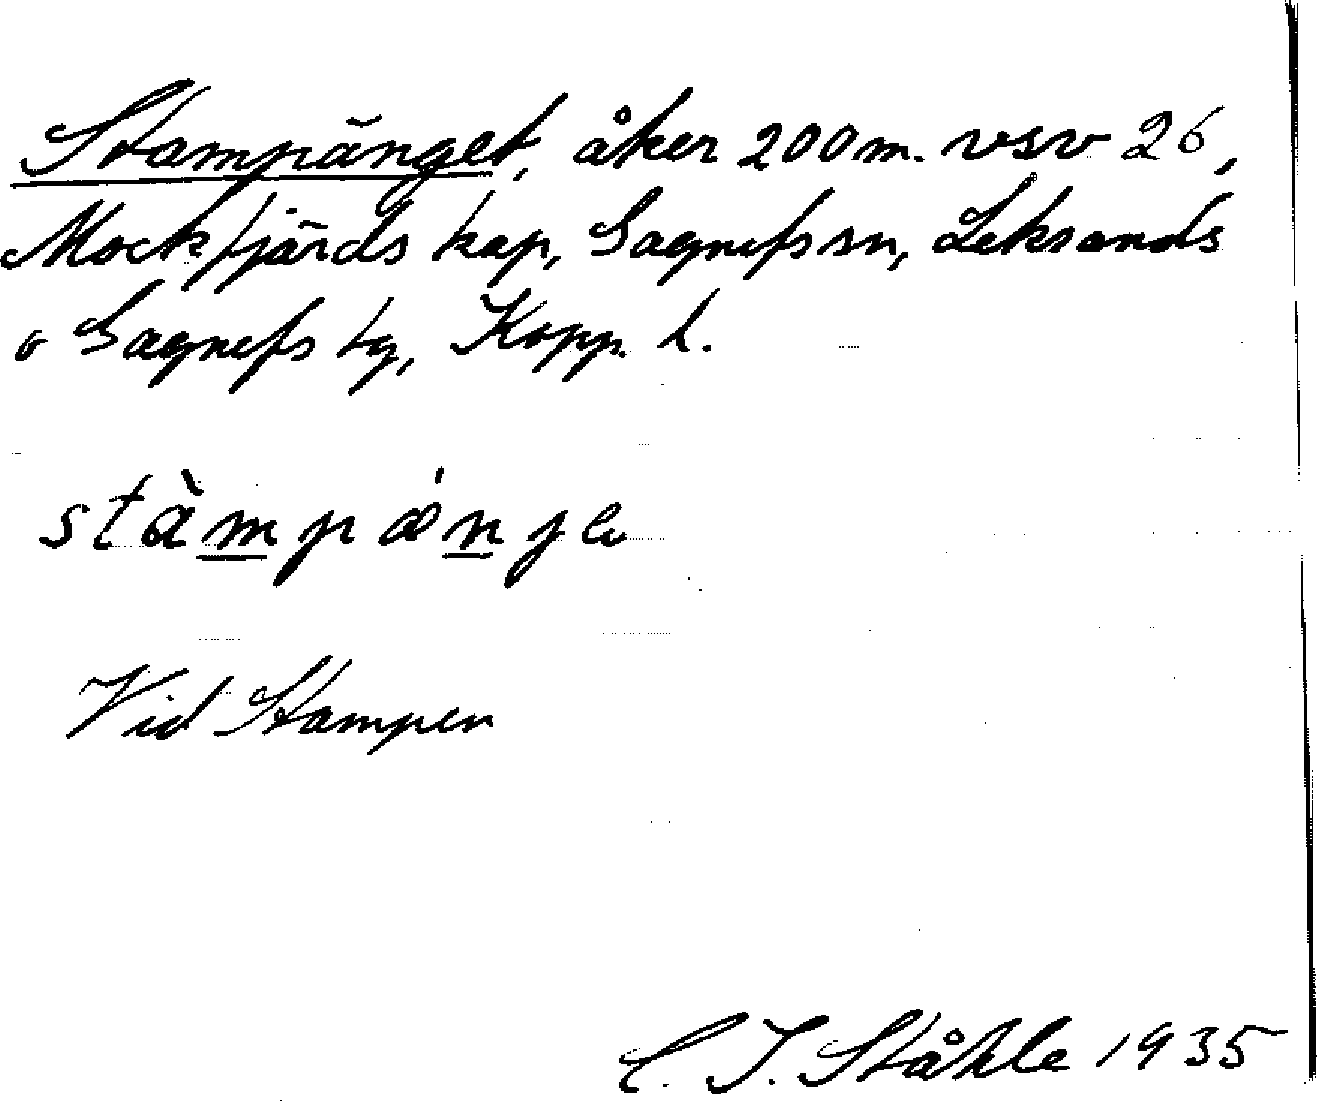 Stampänget, åker 200 m. vsv 26,
Mockfjärds kap, Gagnefs sn, Leksands
o Gagnefs tg, Kopp. l.
Vid Stampen
C. I. Ståhle 1935